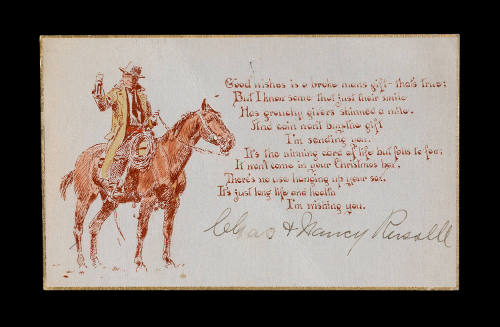 Good wishes is a broke mans gift - thats true;
But I know some that just their smile
Has grouchy givers skinned a mile.
And coin wont buy the gift
I'm sending you.
It's the winning card of life but folls to few;
It wont come in your Christmas box,
There's no use hanging up your sox.
It's just long life and health
I'm wishing you.
Chas & Nancy Russell